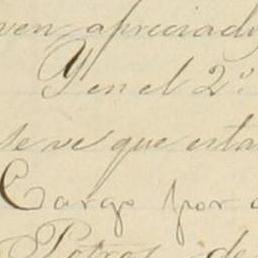 ven apreciad
Y en el 2º
se ve que esta
Cargo por
Potros de